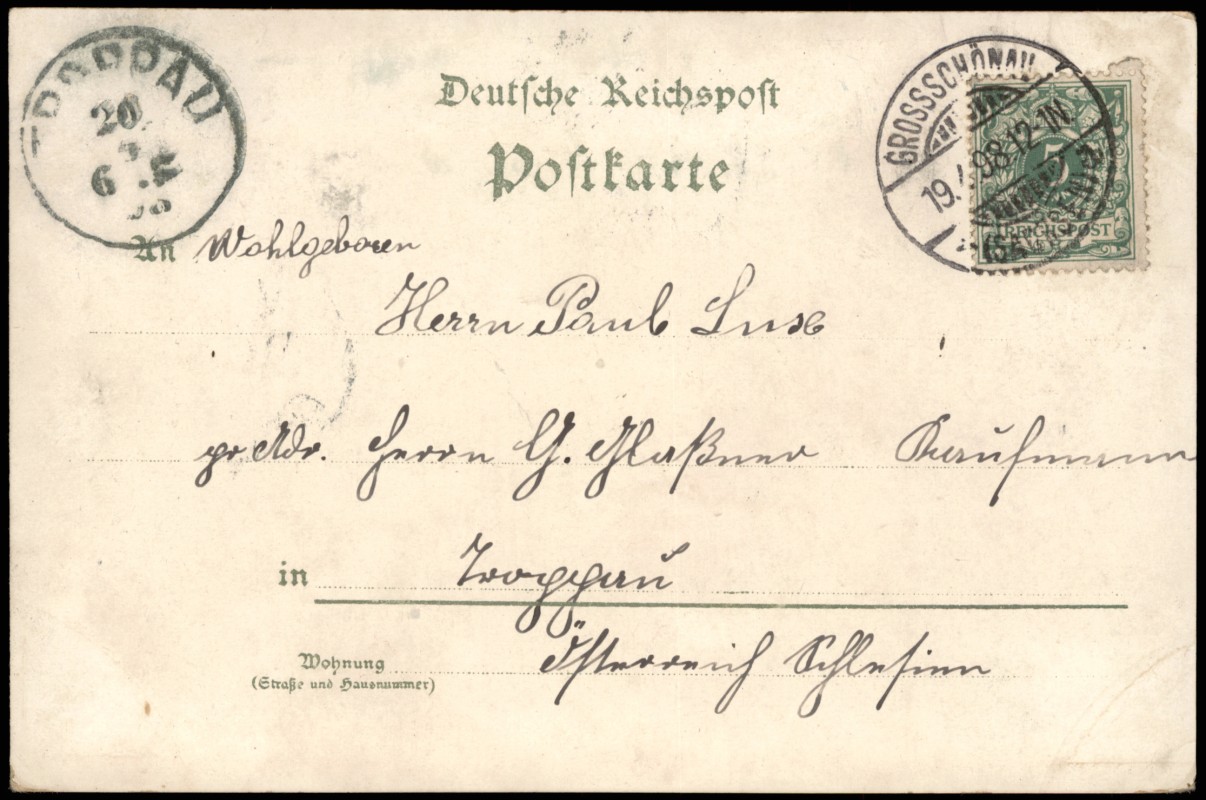 TROPPAU
20
6
98
Deutsche Reichspost
Postkarte
GROSSSCHÖNAU
19. 98·12-1N
5
REICHSPOST
An Wohlgeboren
Herrn Paul
pr. Adr. Herrn G. Glaßner Kaufmann
in Troppau
Österreich Schlesien
Wohnung
(Straße und Hausnummer)